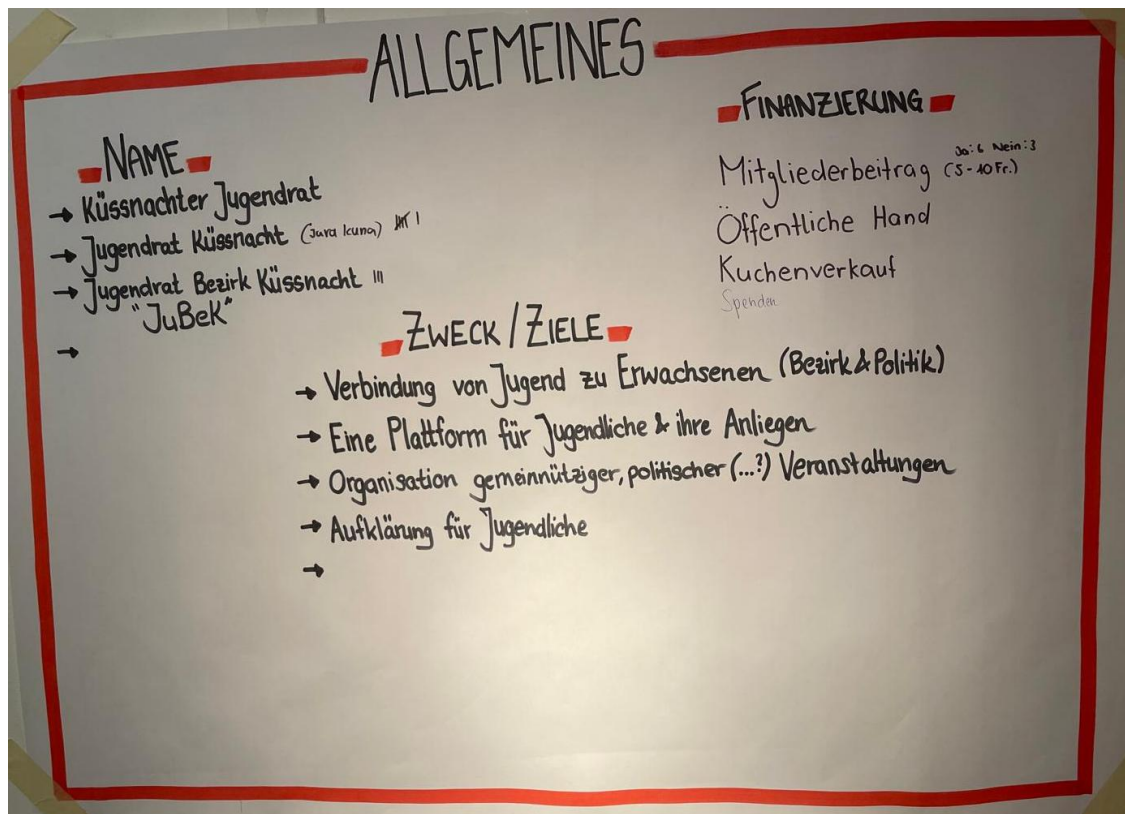 ALLGEMEINES
NAME
→ Küssnachter Jugendrat
→ Jugendrat Küssnacht (Jura Kuna) 𝍸 I
→ Jugendrat Bezirk Küssnacht III
"JuBeK"
→
FINANZIERUNG
Ja: 6 Nein: 3
Mitgliederbeitrag (5-10 Fr.)
Öffentliche Hand
Kuchenverkauf
Spenden
ZWECK / ZIELE
→ Verbindung von Jugend zu Erwachsenen (Bezirk & Politik)
→ Eine Plattform für Jugendliche & ihre Anliegen
→ Organisation gemeinnütziger, politischer (...?) Veranstaltungen
→ Aufklärung für Jugendliche
→